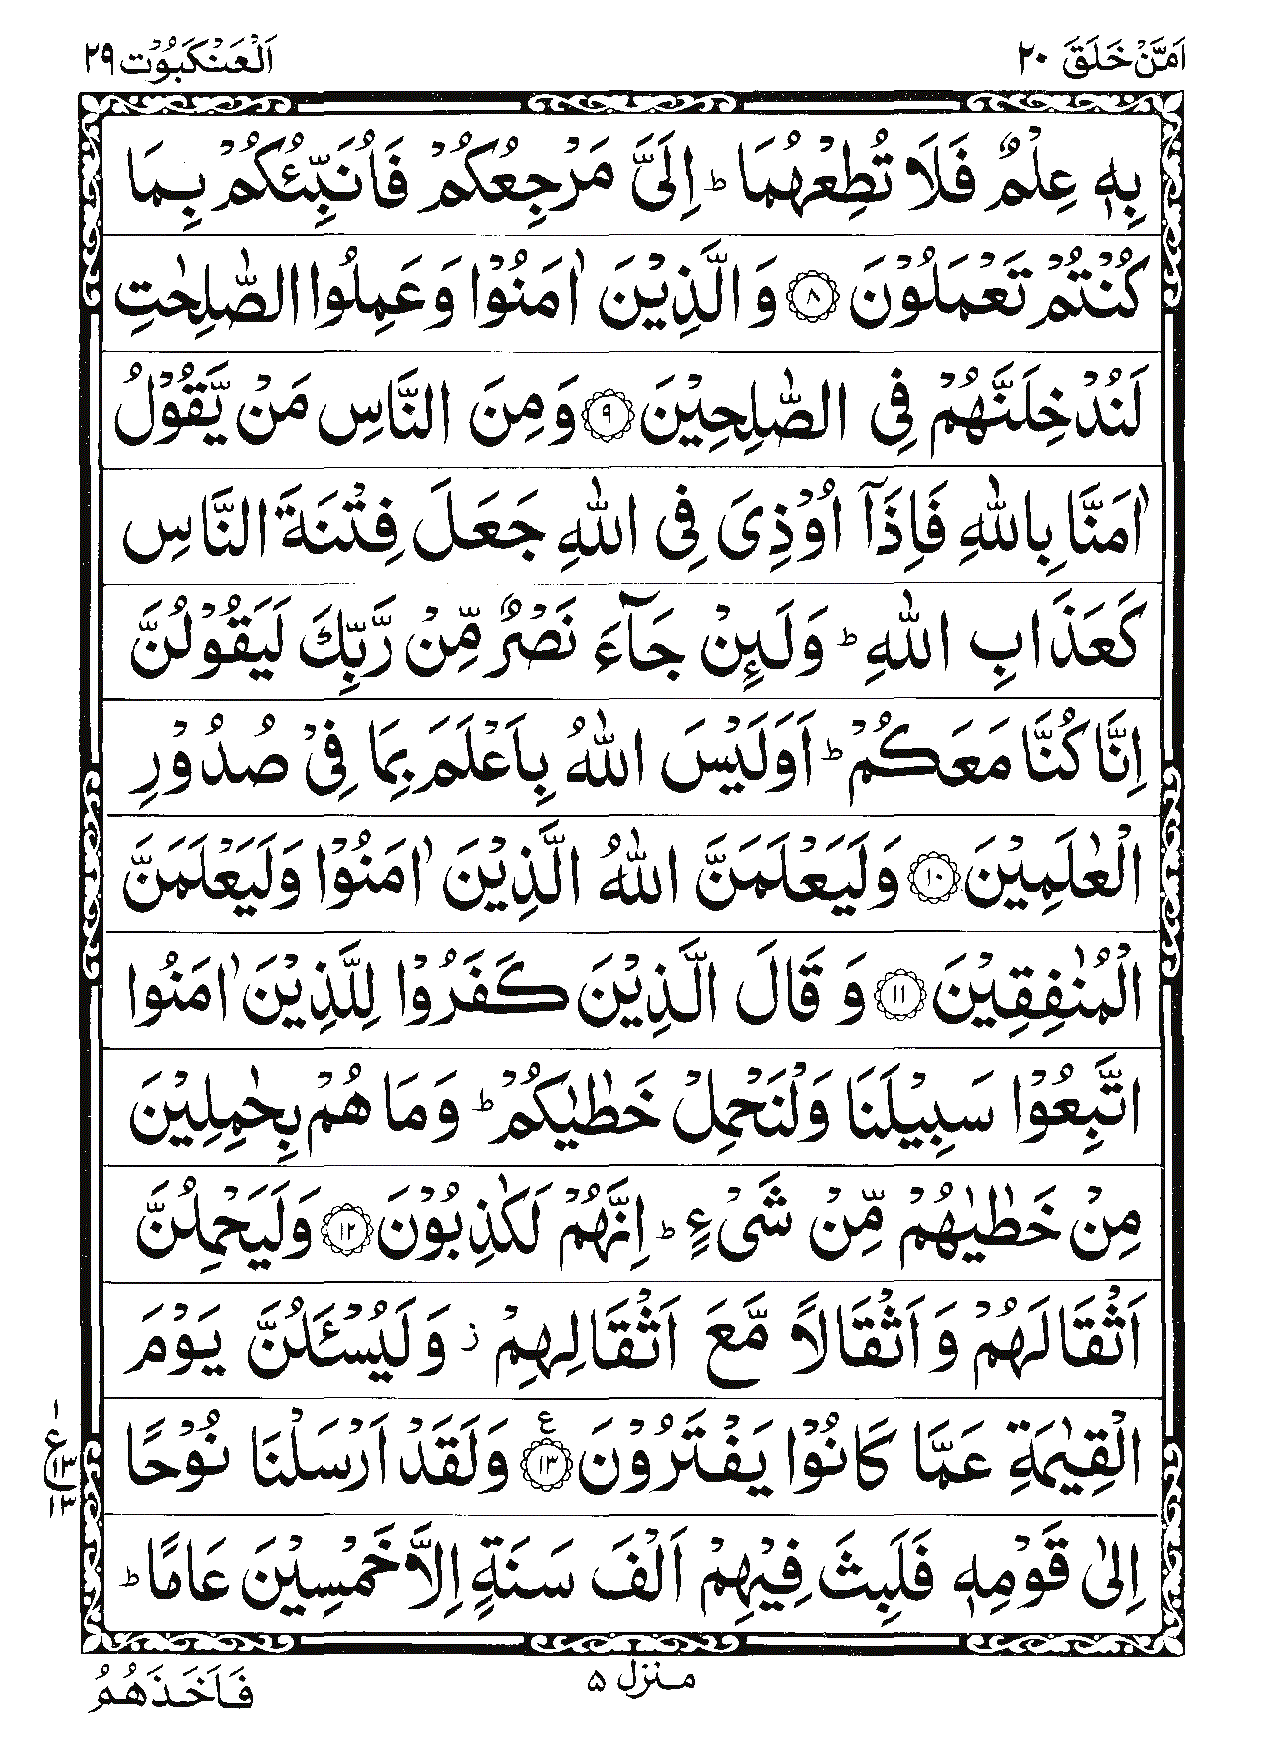 اَمَّنْ خَلَقَ ٢٠
اَلْعَنْكَبُوْت ٢٩
بِهٖ عِلْمٌ فَلَا تُطِعْهُمَا ؕ اِلَيَّ مَرْجِعُكُمْ فَاُنَبِّئُكُمْ بِمَا
كُنْتُمْ تَعْمَلُوْنَ ۝٨ وَ الَّذِيْنَ اٰمَنُوْا وَعَمِلُوا الصّٰلِحٰتِ
لَنُدْخِلَنَّهُمْ فِى الصّٰلِحِيْنَ ۝٩ وَمِنَ النَّاسِ مَنْ يَّقُوْلُ
اٰمَنَّا بِاللّٰهِ فَاِذَآ اُوْذِىَ فِى اللّٰهِ جَعَلَ فِتْنَةَ النَّاسِ
كَعَذَابِ اللّٰهِ ؕ وَلَئِنْ جَآءَ نَصْرٌ مِّنْ رَّبِّكَ لَيَقُوْلُنَّ
اِنَّا كُنَّا مَعَكُمْ ؕ اَوَلَيْسَ اللّٰهُ بِاَعْلَمَ بِمَا فِىْ صُدُوْرِ
الْعٰلَمِيْنَ ۝١٠ وَلَيَعْلَمَنَّ اللّٰهُ الَّذِيْنَ اٰمَنُوْا وَلَيَعْلَمَنَّ
الْمُنٰفِقِيْنَ ۝١١ وَ قَالَ الَّذِيْنَ كَفَرُوْا لِلَّذِيْنَ اٰمَنُوا
اتَّبِعُوْا سَبِيْلَنَا وَلْنَحْمِلْ خَطٰيٰكُمْ ؕ وَمَا هُمْ بِحٰمِلِيْنَ
مِنْ خَطٰيٰهُمْ مِّنْ شَىْءٍ ؕ اِنَّهُمْ لَكٰذِبُوْنَ ۝١٢ وَلَيَحْمِلُنَّ
اَثْقَالَهُمْ وَ اَثْقَالًا مَّعَ اَثْقَالِهِمْ ز وَلَيُسْئَلُنَّ يَوْمَ
الْقِيٰمَةِ عَمَّا كَانُوْا يَفْتَرُوْنَ ۝١٣ ع وَلَقَدْ اَرْسَلْنَا نُوْحًا
١
ع ١٣
١٣
اِلٰى قَوْمِهٖ فَلَبِثَ فِيْهِمْ اَلْفَ سَنَةٍ اِلَّا خَمْسِيْنَ عَامًا ؕ
منزل ۵
فَاَخَذَهُمُ